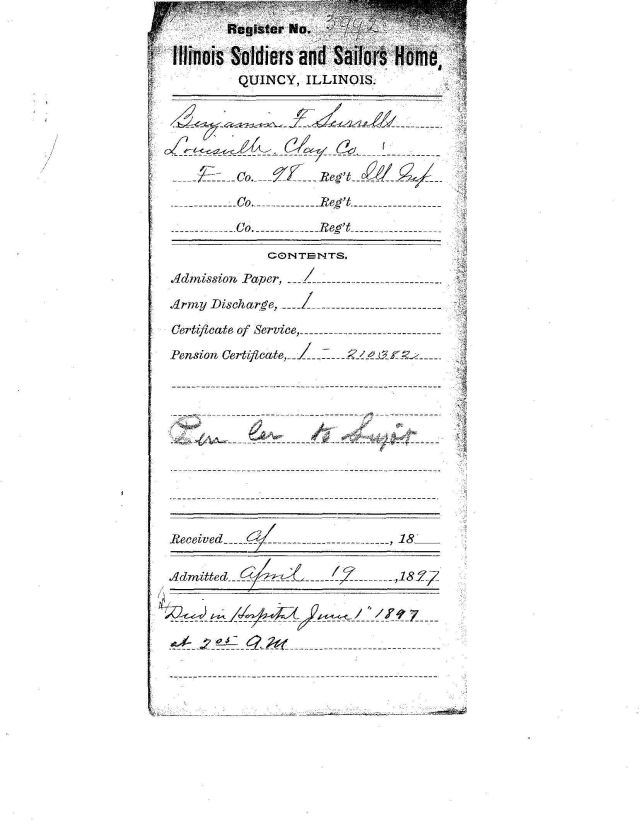 Register No. 3992
Illinois Soldiers and Sailors Home,
QUINCY, ILLINOIS.
Benjamin F Surrells
Louisville Clay Co.
F Co. 98 Reg't Ill Inf
Co. Reg't
Co. Reg't
CONTENTS.
Admission Paper, 1
Army Discharge, 1
Certificate of Service,
Pension Certificate, 1 - 210382
Pen Cer to Supt
Received Ap , 18
Admitted April 19 , 1897
Died in Hospital June 1" 1897
at 2 05 A.M